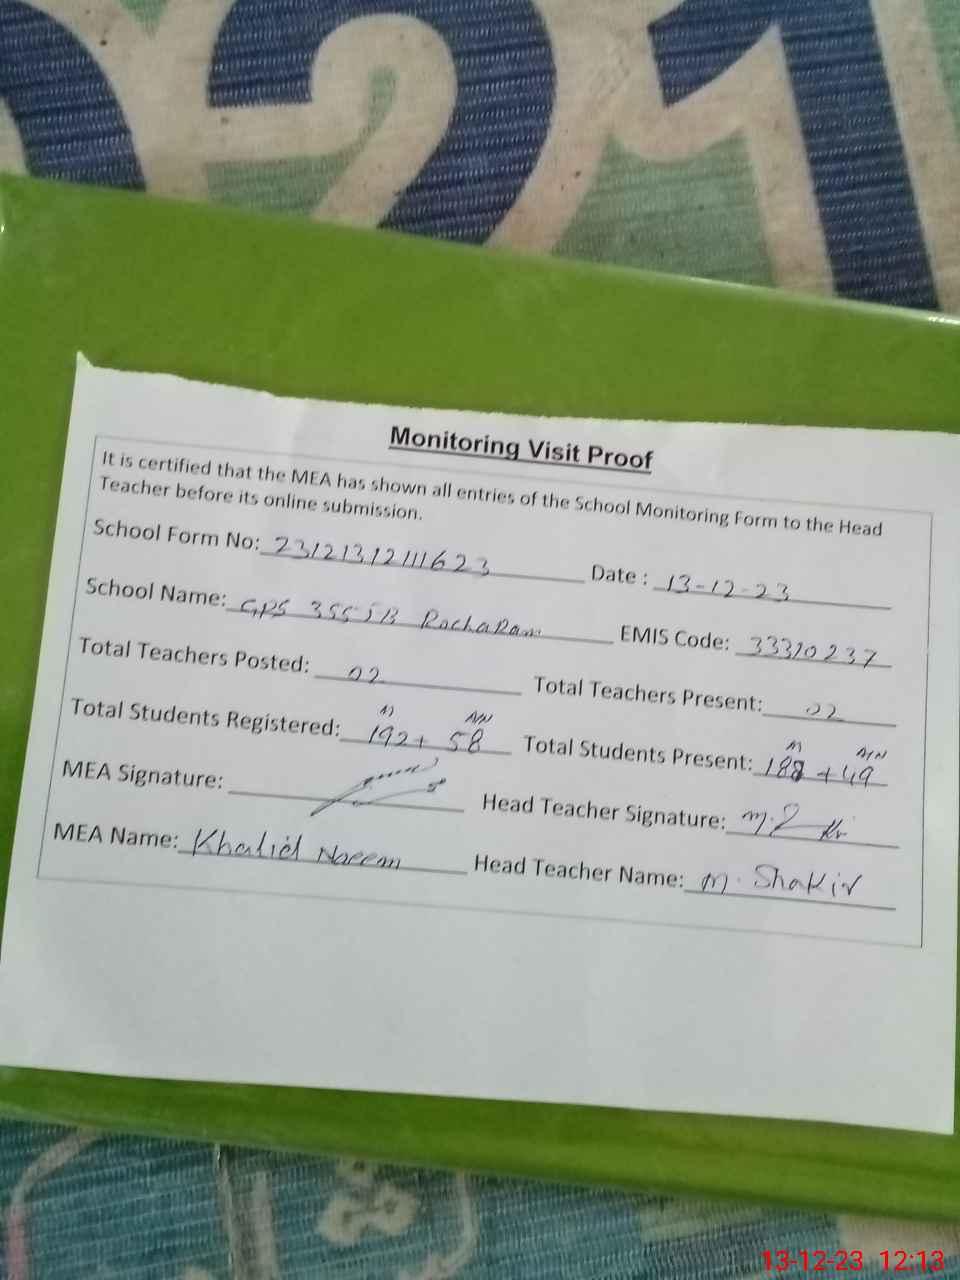 21
Monitoring Visit Proof
It is certified that the MEA has shown all entries of the School Monitoring Form to the Head
Teacher before its online submission.
School Form No: 2312131211623 Date : 13-12-23
School Name: GPS 355 JB Racharam EMIS Code: 33310237
Total Teachers Posted: 02 Total Teachers Present: 02
Total Students Registered: M 192 + AN 58 Total Students Present: M 188 + AN 49
MEA Signature: Head Teacher Signature:
MEA Name: Khalid Naeem Head Teacher Name: M. Shakir
13-12-23 12:13